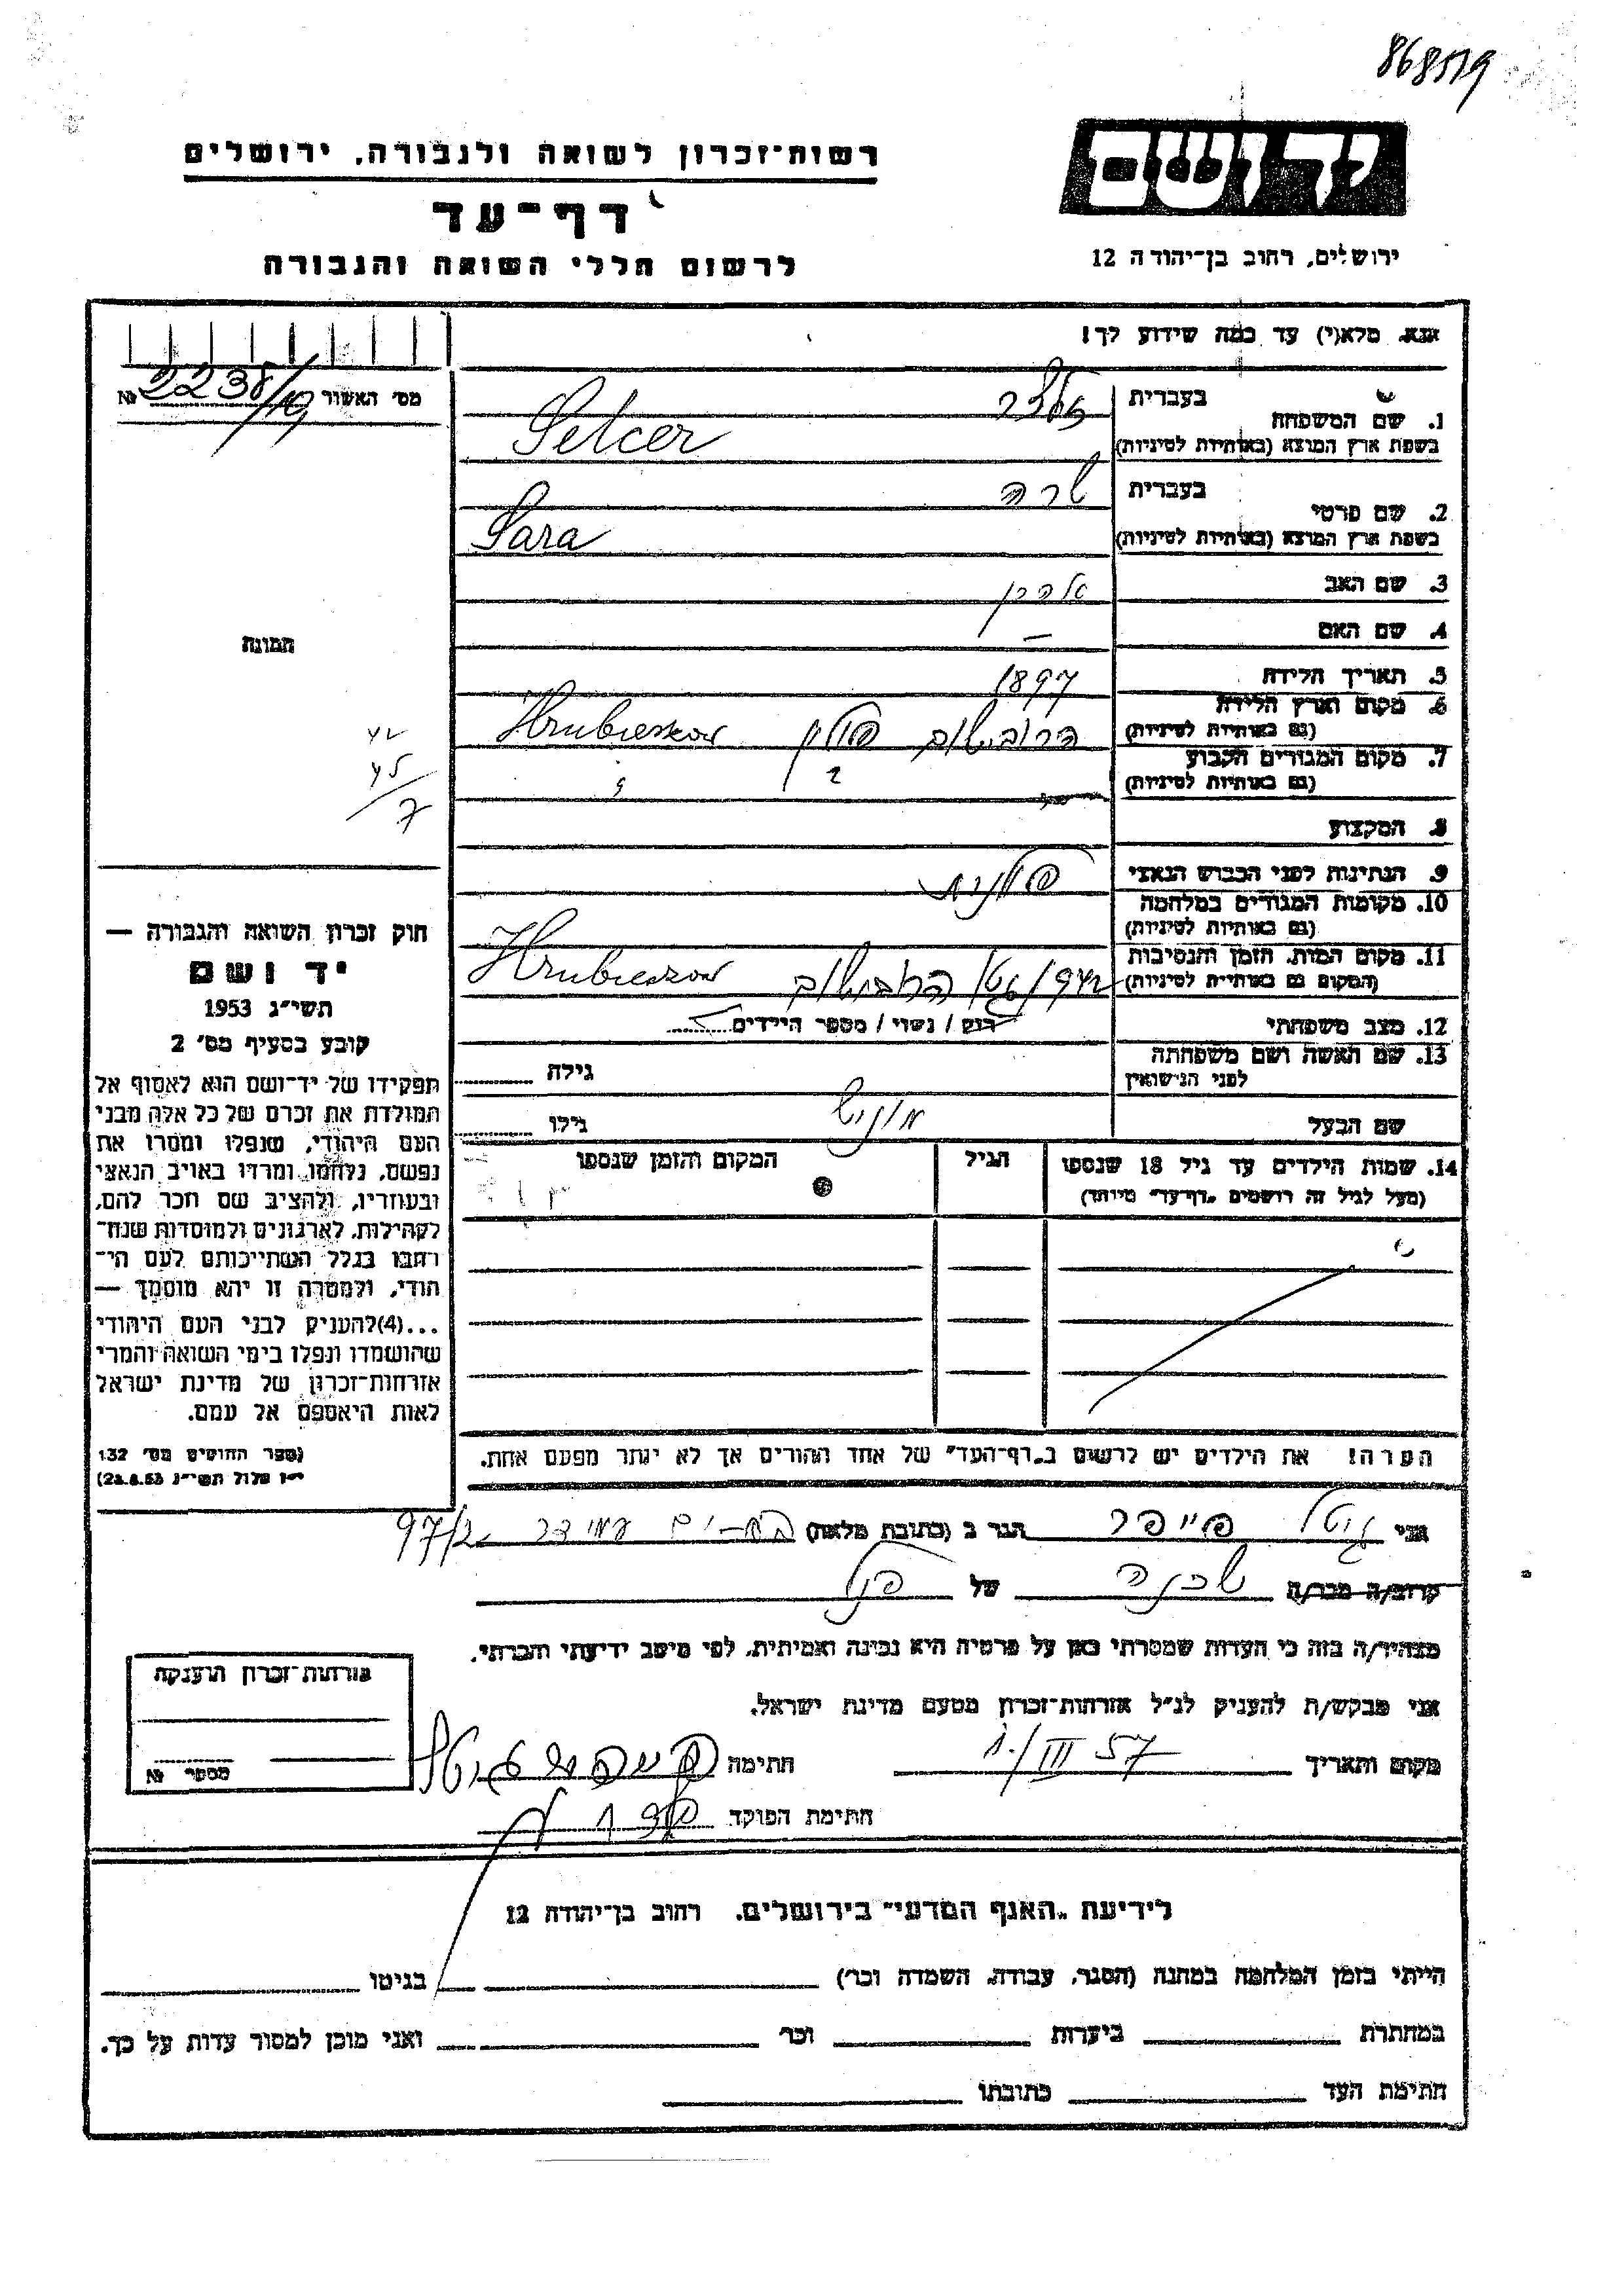 868519
יד ושם
רשות־זכרון לשואה ולגבורה, ירושלים
דף־עד
לרשום חללי השואה והגבורה
ירושלים, רחוב בן־יהודה 12
אנא, מלא(י) עד כמה שידוע לך!
מס׳ האשור
№ 2238/
1. שם המשפחה
בעברית
בשפת ארץ המוצא (באותיות לטיניות) Selcer
2. שם פרטי
בעברית שרה
בשפת ארץ המוצא (באותיות לטיניות) Sara
3. שם האב אהרן
4. שם האם —
5. תאריך הלידה 1897
6. מקום וארץ הלידה
(גם באותיות לטיניות) הרובישוב פולין Hrubieszow
7. מקום המגורים הקבוע
(גם באותיות לטיניות) ?
8. המקצוע
9. הנתינות לפני הכבוש הנאצי פולנית
10. מקומות המגורים במלחמה
(גם באותיות לטיניות)
11. מקום המות, הזמן והנסיבות
(המקום גם באותיות לטיניות) הרובישוב Hrubieszow
12. מצב משפחתי רוק / נשוי / מספר הילדים
13. שם האשה ושם משפחתה
לפני הנישואין גילה
שם הבעל גילו
14. שמות הילדים עד גיל 18 שנספו
(מעל לגיל זה רושמים „דף־עד״ מיוחד)
הגיל
המקום והזמן שנספו
הערה! את הילדים יש לרשום ב„דף־העד״ של אחד ההורים אך לא יותר מפעם אחת.
תמונה
42
45
7
חוק זכרון השואה והגבורה —
יד ושם
תשי״ג 1953
קובע בסעיף מס׳ 2
תפקידו של יד־ושם הוא לאסוף אל
המולדת את זכרם של כל אלה מבני
העם היהודי, שנפלו ומסרו את
נפשם, נלחמו ומרדו באויב הנאצי
ובעוזריו, ולהציב שם וזכר להם,
לקהילות, לארגונים ולמוסדות שנח־
רבו בגלל השתייכותם לעם הי־
הודי, ולמטרה זו יהא מוסמך —
...(4)להעניק לבני העם היהודי
שהושמדו ונפלו בימי השואה והמרי
אזרחות־זכרון של מדינת ישראל
לאות היאספם אל עמם.
(ספר החוקים מס׳ 132
י״ז אלול תשי״ג 28.8.53)
אני גיטל פייפר הגר ב (כתובת מלאה) בת-ים עמידר 97/2
קרוב/ה מכר/ה שכנה של הנ״ל
מצהיר/ה בזה כי העדות שמסרתי כאן על פרטיה היא נכונה ואמיתית, לפי מיטב ידיעתי והכרתי.
אני מבקש/ת להעניק לנ״ל אזרחות־זכרון מטעם מדינת ישראל.
מקום ותאריך 1./III 57 חתימה
חתימת הפוקד
אזרחות־זכרון הוענקה
מספר №
לידיעת „האגף המדעי״ בירושלים, רחוב בן־יהודה 12
הייתי בזמן המלחמה במחנה (הסגר, עבודה, השמדה וכר׳) בגיטו
במחתרת ביערות וכר׳ ואני מוכן למסור עדות על כך.
חתימת העד כתובתו